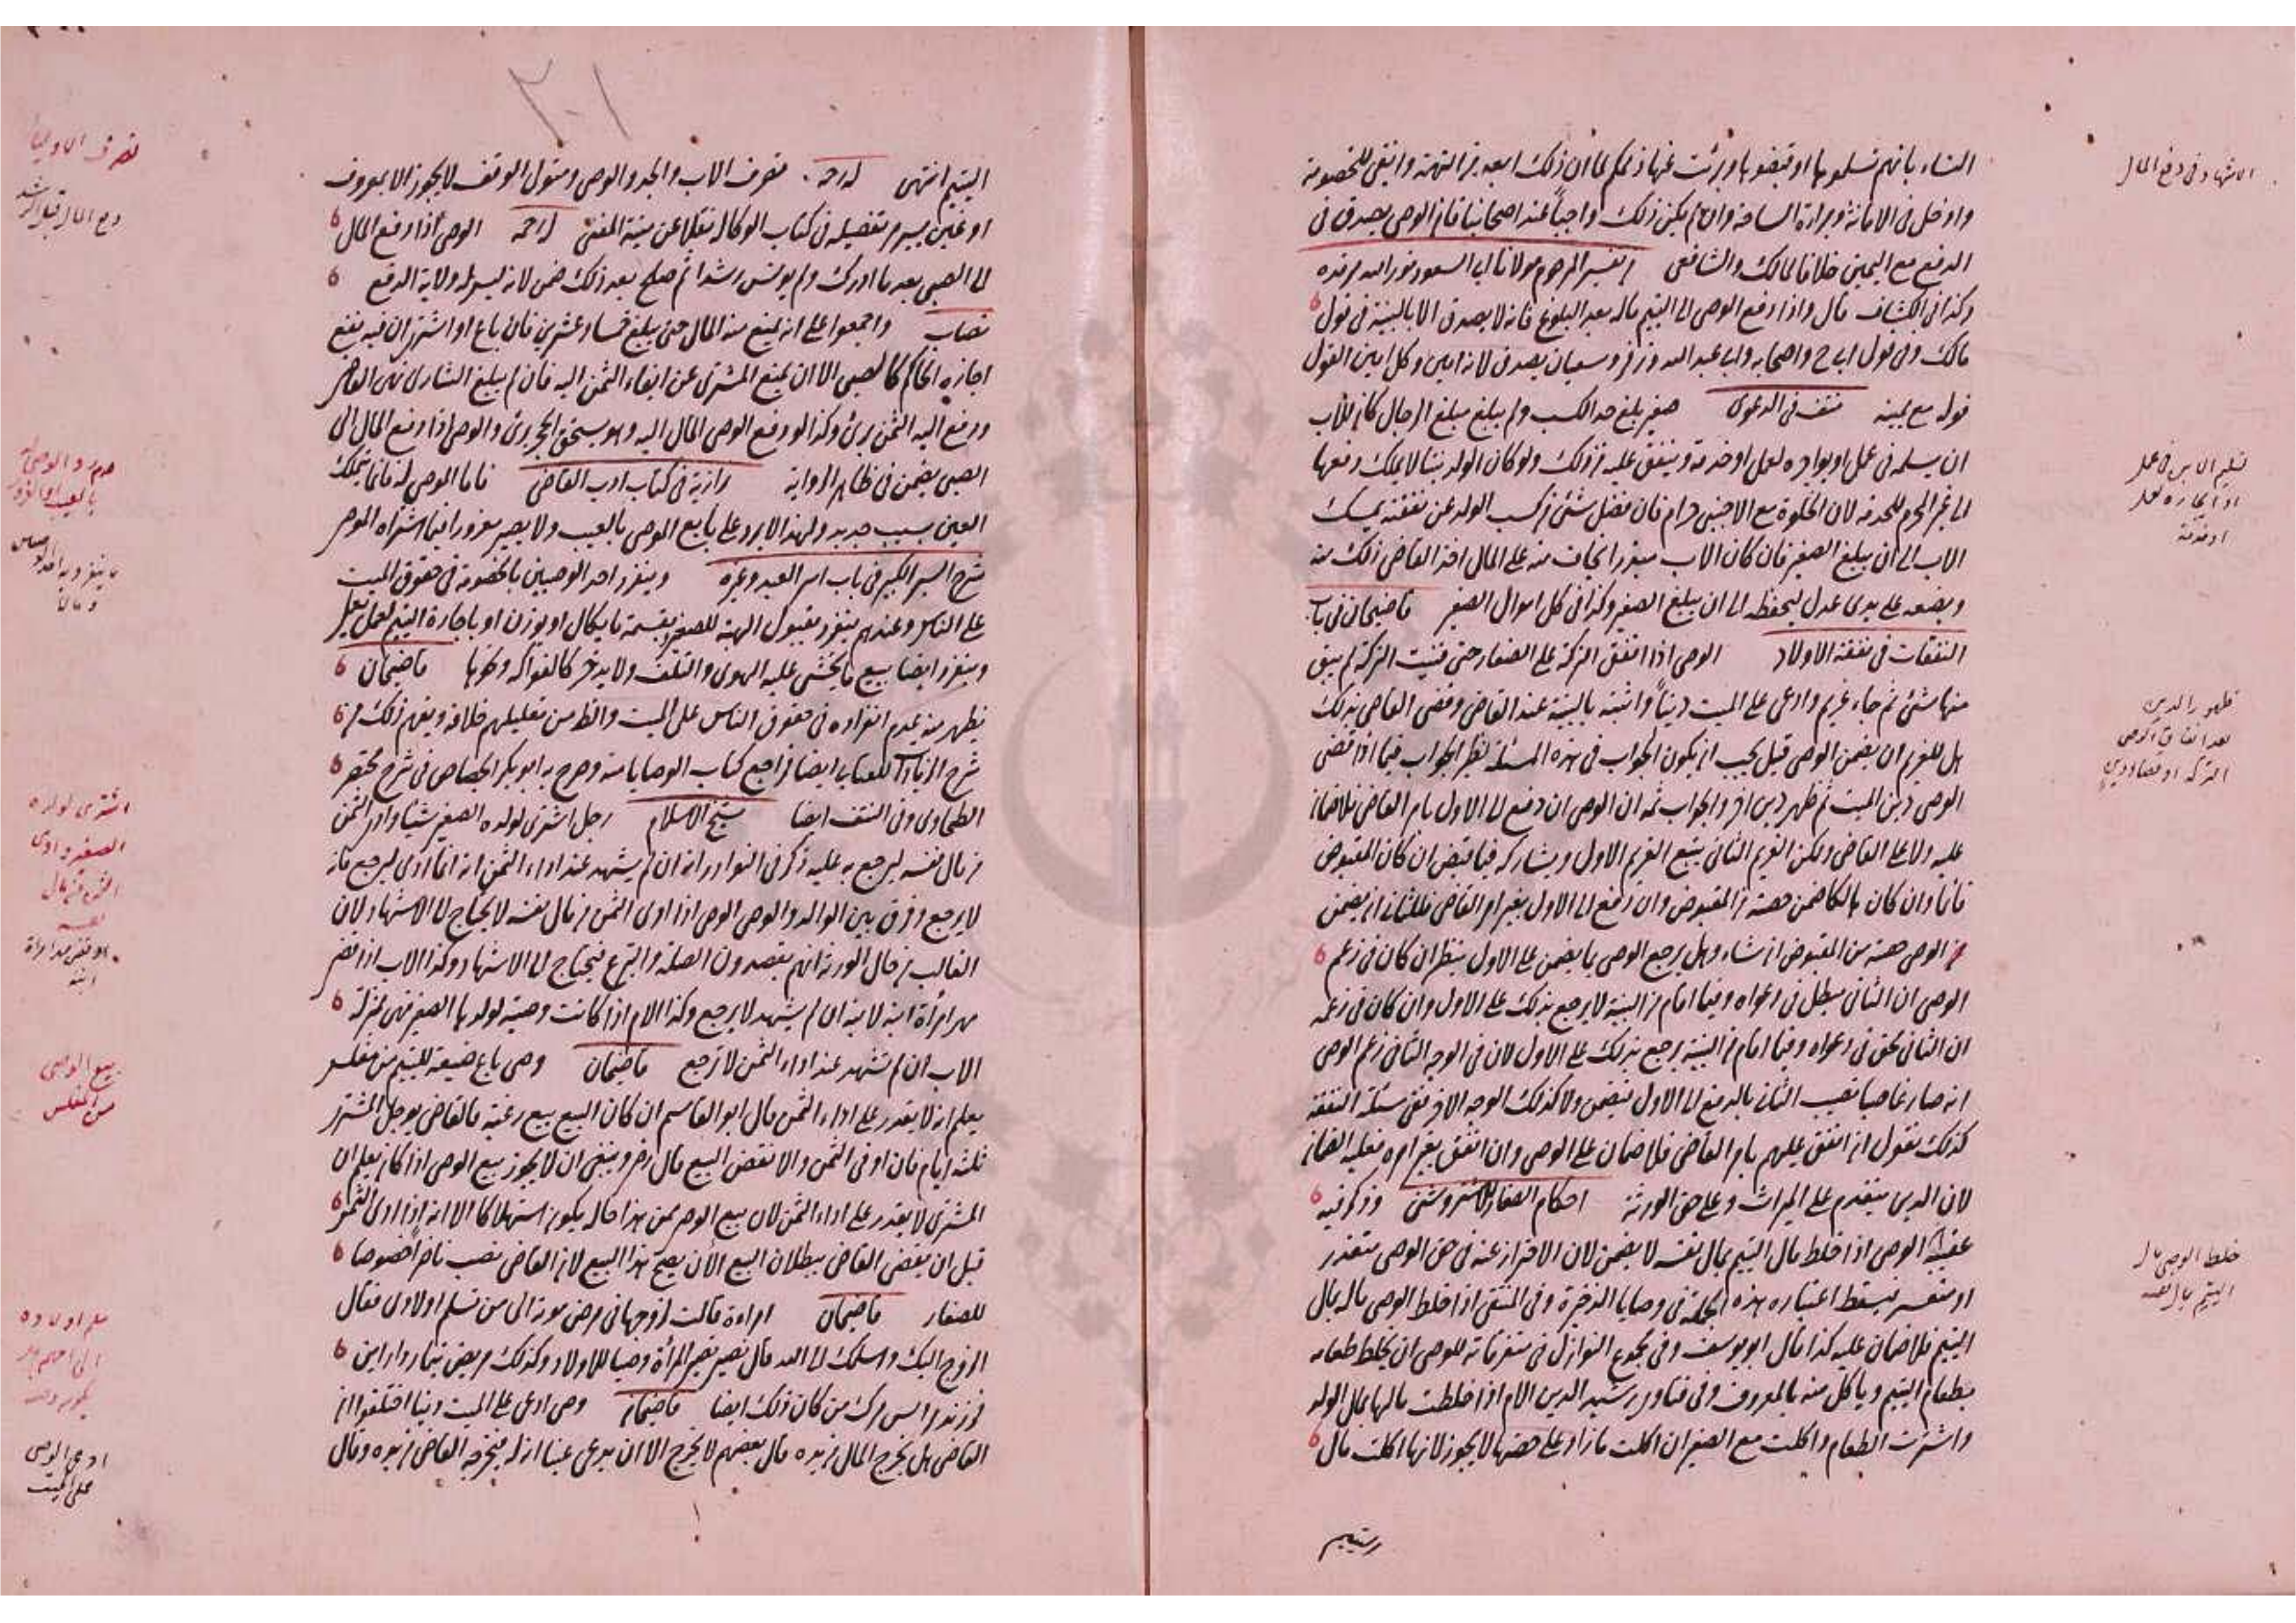 الاشهاد فى دفع المال
التناء بانهم تسلموها او قبضوها وبرئت عنها ذممكم لما ان ذلك ابعد من التهمة وانفى للخصومة
وادخل فى الامانة وبراءة الساحة وان لم يكن ذلك واجباً عند اصحابنا فان الوصى يصدق فى
الدفع مع اليمين خلافا لمالك والشافعى تفسير المرحوم مولانا ابى السعود نور الله مرقده
وكذا فى الكشاف قال واذا دفع الوصى الى اليتيم ماله بعد البلوغ فانه لا يصدق الا بالبينة فى قول
مالك وفى قول ابى ح واصحابه وابى عبد الله وزفر وسفيان يصدق لانه امين وكل امين القول
قوله مع يمينه نتف فى الدعوى صغير بلغ حد الكسب ولم يبلغ مبلغ الرجال كان للاب
ان يسلمه فى عمل او يواجره لعمل او خدمة وينفق عليه من ذلك ولو كان الولد بنتا لا يملك دفعها
الى غير المحرم للخدمة لان الخلوة مع الاجنبى حرام فان فضل شئ من كسب الولد عن نفقته يمسك
الاب الى ان يبلغ الصغير فان كان الاب مبذرا يخاف منه على المال اخذ القاضى ذلك منه
ويضعه على يدى عدل ليحفظه الى ان يبلغ الصغير وكذا فى كل اموال الصغير قاضيخان فى باب
النفقات فى نفقة الاولاد الوصى اذا انفق التركة على الصغار حتى فنيت التركة لم يبق
منها شئ ثم جاء غريم وادعى على الميت ديناً واثبته بالبينة عند القاضى وقضى القاضى بذلك
هل للغريم ان يضمن الوصى قيل يجب ان يكون الجواب فى هذه المسئلة نظير الجواب فيما اذا قضى
الوصى دين الميت ثم ظهر دين اخر والجواب ثمه ان الوصى ان دفع الى الاول بامر القاضى فلا ضمان
عليه ولا على القاضى ولكن الغريم الثانى يتبع الغريم الاول ويشاركه فيما قبض ان كان المقبوض
قائما وان كان هالكا ضمن حصته من المقبوض وان دفع الى الاول بغير امر القاضى فللثانى ان يضمن
الوصى حصته من المقبوض ان شاء وهل يرجع الوصى بما يضمن على الاول ينظر ان كان فى زعم
الوصى ان الثانى مبطل فى دعواه وفيما اقام من البينة لا يرجع بذلك على الاول وان كان فى زعمه
ان الثانى محق فى دعواه وفيما اقام من البينة يرجع بذلك على الاول لان فى الوجه الثانى زعم الوصى
انه صار غاصبا نصيب الثانى بالدفع الى الاول فيضمن ولا كذلك الوجه الاخر ففى مسئلة النفقة
كذلك نقول ان انفق عليهم بامر القاضى فلا ضمان على الوصى وان انفق بغير امره فعليه الضمان
لان الدين يتقدم على الميراث وعلى حق الورثة احكام الصغار للاستروشنى وذكر فيه
عقيبه الوصى اذا خلط مال اليتيم بمال نفسه لا يضمن لان الاحتراز عنه فى حق الوصى متعذر
او متعسر فيسقط اعتباره هذه الجملة فى وصايا الذخيرة وفى المنتقى اذا خلط الوصى ماله بمال
اليتيم فلا ضمان عليه كذا قال ابو يوسف وفى مجموع النوازل فى متفرقاته للوصى ان يخلط طعامه
بطعام اليتيم وياكل منه بالمعروف وفى فتاوى رشيد الدين الام اذا خلطت مالها بمال الولد
واشترت الطعام واكلت مع الصغير ان اكلت ما زاد على حصتها لا يجوز لانها اكلت مال
اليتيم
تسليم الابن فى عمل
او ايجاره لعمل
او خدمة
ظهور الدين
بعد انفاق الوصى
التركة او قضاء دين
خلط الوصى مال
اليتيم بمال نفسه
٣٠١
اليتيم انتهى تصرف الاب والجد والوصى ومتولى الوقف لا يجوز الا بمعروف
او غبن يسير مر تفصيله فى كتاب الوكالة نقلا عن منية المفتى الوصى اذا دفع المال
الى الصبى بعد ما ادرك ولم يونس رشدا ثم صلح بعد ذلك ضمن لانه ليس له ولاية الدفع
نصاب واجمعوا على انه يمنع منه المال حتى يبلغ خمسا وعشرين فان باع او اشترى ان فيه نفع
اجازه الحاكم كالصبى الا ان يمنع المشترى عن ايفاء الثمن اليه فان لم يبلغ الشارى نهى القاضى
ودفع اليه الثمن برئ وكذا لو دفع الوصى المال اليه وهو يستحق الحجر برئ والوصى اذا دفع المال الى
الصبى يضمن فى ظاهر الرواية بزازية فى كتاب ادب القاضى فاما الموصى له فانما يتملك
العين بسبب جديد ولهذا لا يرد على بايع الموصى بالعيب ولا يصير مغرورا فيما اشتراه الموصى
شرح السير الكبير فى باب اسر العبد وغيره وينفرد احد الوصيين بالخصومة فى حقوق الميت
على الناس وعندهم ينفرد بقبول الهبة للصغير وبقسمة ما يكال او يوزن او باجارة اليتيم لعمل يعمل
وينفرد ايضا ببيع ما يخشى عليه التوى والتلف ولا يدخر كالفواكه ونحوها قاضيخان
يظهر منه عدم انفراده فى حقوق الناس على الميت والظ من تعليلهم خلافه ويفهم ذلك من
شرح الزيادات للعتابى ايضا فراجع كتاب الوصايا منه وصرح به ابو بكر الجصاص فى شرح مختصر
الطحاوى وفى النتف ايضا شيخ الاسلام رجل اشترى لولده الصغير شيئا وادى الثمن
من مال نفسه ليرجع به عليه ذكر فى النوادر انه ان لم يشهد عند اداء الثمن انه انما ادى ليرجع فانه
لا يرجع وفرق بين الوالد والوصى الوصى اذا ادى الثمن من مال نفسه لا يحتاج الى الاشهاد لان
الغالب من حال الورثة انهم يقصدون الصلة والتبرع فيحتاج الى الاشهاد وكذا الاب اذا قضى
مهر امرأة ابنه لابنه ان لم يشهد لا يرجع وكذا الام اذا كانت وصية لولدها الصغير فهى بمنزلة
الاب ان لم تشهد عند اداء الثمن لا ترجع قاضيخان وصى باع ضيعة لليتيم من مفلس
يعلم انه لا يقدر على اداء الثمن قال ابو القاسم ان كان البيع بيع رغبة فالقاضى يوجل المشترى
ثلثة ايام فان اوفى الثمن والا نقض البيع قال رض وينبغى ان لا يجوز بيع الوصى اذا كان يعلم ان
المشترى لا يقدر على اداء الثمن لان بيع الوصى ممن هذا حاله يكون استهلاكا الا انه اذا ادى الثمن
قبل ان يقضى القاضى ببطلان البيع الآن يصح هذا البيع لان القاضى نصب ناظراً خصوصا
للصغار قاضيخان امراءة قالت لزوجها فى مرض موته الى من تسلم اولادى فقال
الزوج اليك واسلمك الى الله قال نصير تصير المرأة وصيا للاولاد وكذلك مريض تيمار دار اين
فرزندان من كان ذلك ايضا قاضيخان وصى ادعى على الميت دينا اختلفوا ان
القاضى هل يخرج المال من يده قال بعضهم لا يخرج الا ان يدعى عينا انه له فيخرجه القاضى من يده وقال
تصرف الاوليا
دفع المال قبل الرشد
اشترى لولده
الصغير وادى
الثمن من مال
نفسه
او قضى مهر امرأة
ابنه
بيع الوصى
من مفلس
ادعى الوصى
على الميت